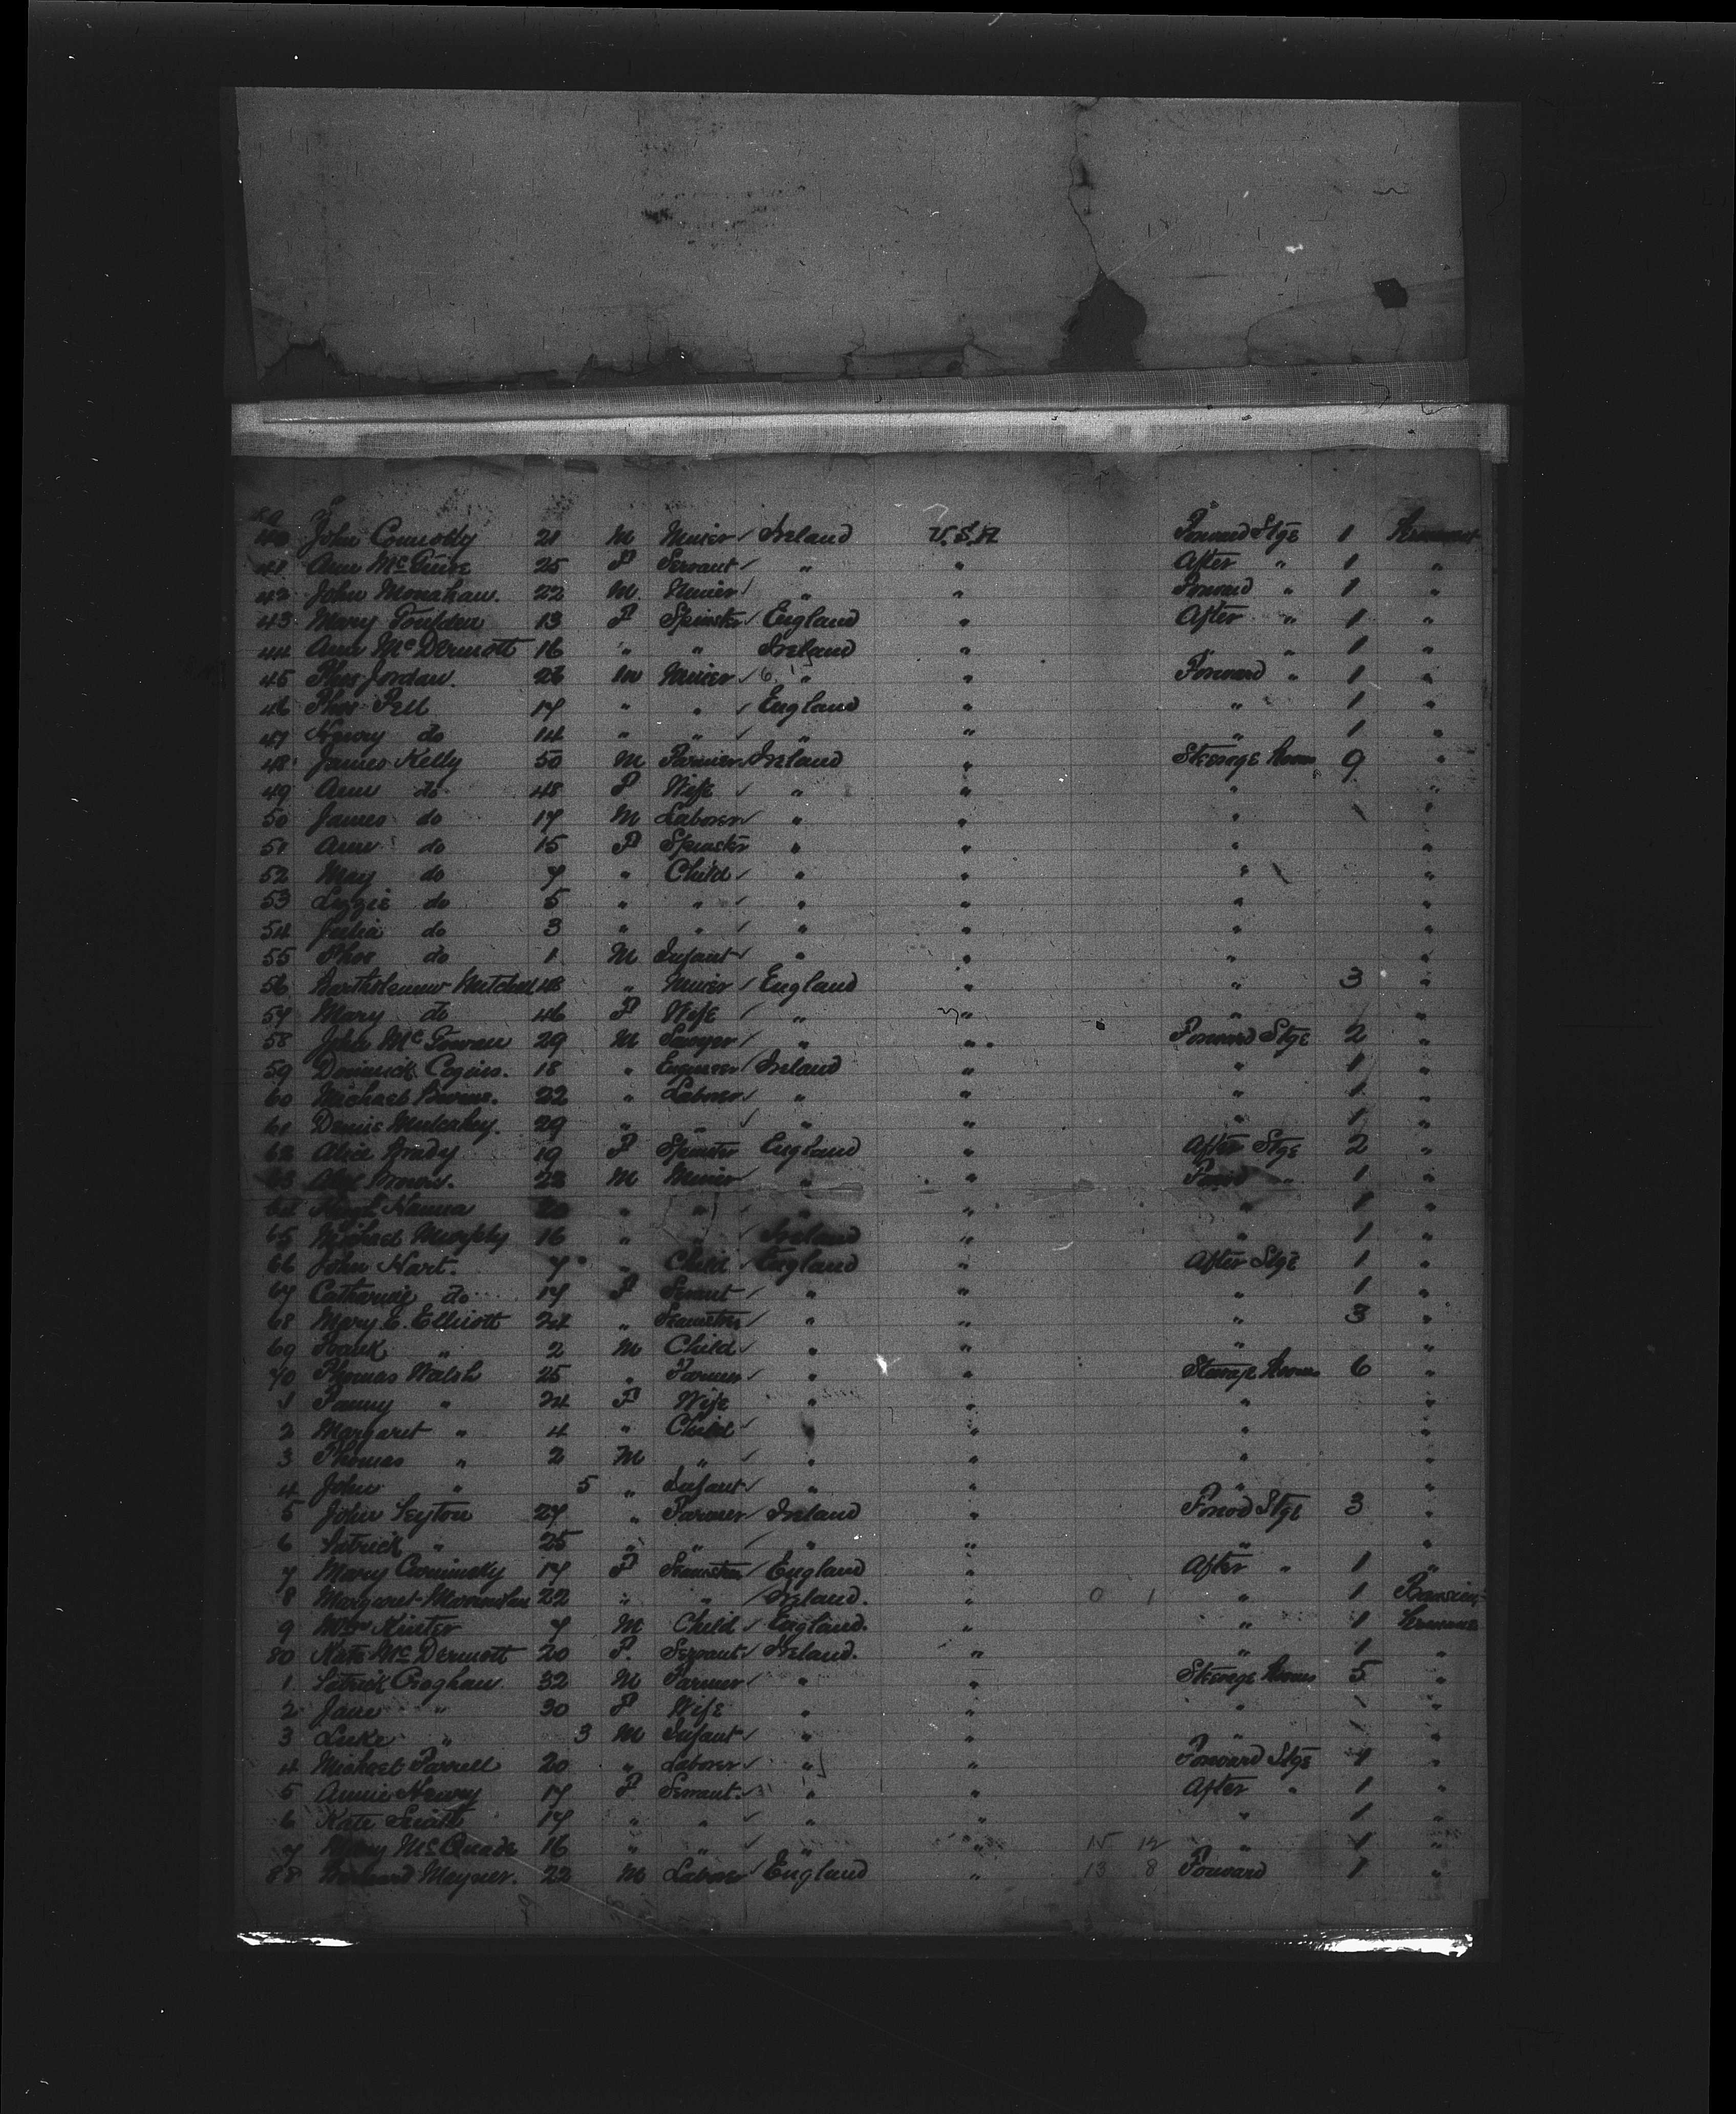 40 John Connolly 21 M Miner Ireland U.S.A Forward Stge 1
41 Ann McGuire 25 F Servant " " After " 1 "
42 John Monahan. 22 M Miner " " Forward " 1 "
43 Mary 13 F Spinster England " After " 1 "
44 Ann McDermott 16 " " Ireland " " 1 "
45 Thos Jordan. 26 M Miner " " Forward " 1 "
46 Thos Pell 17 " " England " " 1 "
47 Henry do 14 " " " " " 1 "
48 James Kelly 50 M Farmer Ireland " Steerage Room 9 "
49 Ann do 48 F Wife " " " "
50 James do 17 M Laborer " " " "
51 Ann do 15 F Spinster " " " "
52 May do 7 " Child " " " "
53 Lizzie do 5 " " " " " "
54 Julia do 3 " " " " " "
55 Thos do 1 M Infant " " " "
56 Bartholemew Mitchell 48 " Miner England " " 3 "
57 Mary do 46 F Wife " " " "
58 John McGowan 29 M Sawyer " " Forward Stge 2 "
59 Dominick 18 " Engineer Ireland " " 1 "
60 Michael 22 " Laborer " " " 1 "
61 Denis Mulcahy. 29 " " " " " 1 "
62 Alice Brady 19 F Spinster England " After Stge 2 "
63 Brown. 22 M Miner " " Forwd " 1 "
64 Hugh Hanna 20 " " " " " 1 "
65 Michael Murphy 16 " " Ireland " " 1 "
66 John Hart. 7 " Child England " After Stge 1 "
67 Catharine do 17 F Servant " " " 1 "
68 Mary E. Elliott 24 " " " " 3 "
69 Frank " 2 M Child " " " "
70 Thomas Walsh 25 " Farmer " " Steerage Room 6 "
1 Fanny " 24 F Wife " " " "
2 Margaret " 4 " Child " " " "
3 Thomas " 2 M " " " " "
4 John " 5 " Infant " " " "
5 John Leyton 27 " Farmer Ireland " Forwd Stge 3 "
6 Patrick " 25 " " " " " "
7 Mary 17 F England " After " 1 "
8 Margaret 22 " " Ireland. 0 1 " 1
9 Wm Kinter 7 M Child England. " " 1
80 Kate McDermott 20 F. Servant Ireland. " " 1 "
1 Patrick Croghan 32 M Farmer " " Steerage Room 5 "
2 Jane " 30 F Wife " " " "
3 Luke " 3 M Infant " " " "
4 Michael Farrell 20 " Laborer " " Forward Stge 1 "
5 Annie 17 F Servant " " After " 1 "
6 Kate Smith 17 " " " " " 1 "
7 Mary McQuade 16 " " " " 15 12 " 1 "
88 Bernard 22 M Laborer England " 13 8 Forward 1 "